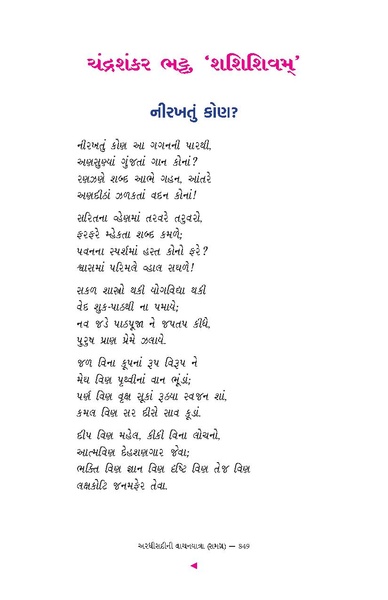 ચંદ્રશંકર ભટ્ટ, ‘શશિશિવમ્’
નીરખતું કોણ?
નીરખતું કોણ આ ગગનની પારથી,
અણસુણ્યાં ગુંજતાં ગાન કોનાં?
રણઝણે શબ્દ આભે ગહન, આંતરે
અણદીઠાં ઝળકતાં વદન કોનાં!
સરિતના વ્હેણમાં તરવરે તરુવરો,
ફરફરે મ્હેકતા શબ્દ કમળે;
પવનના સ્પર્શમાં હસ્ત કોનો ફરે?
શ્વાસમાં પરિમલે વ્હાલ સઘળે!
સકળ શાસ્ત્રો થકી યોગવિદ્યા થકી
વેદ શુક-પાઠથી ના પમાયે;
નવ જડે પાઠપૂજા ને જપતપ કીધે,
પુરુષ પ્રાણ પ્રેમે ઝલાવે.
જળ વિના કૂપનાં રૂપ વિરૂપ ને
મેઘ વિણ પૃથ્વીનાં વાન ભૂંડાં;
પર્ણ વિણ વૃક્ષ સૂકાં રૂઠ્યા સ્વજન શાં,
કમલ વિણ સર દીસે સાવ કૂડાં.
દીપ વિણ મહેલ, કીકી વિના લોચનો,
આત્મવિણ દેહશણગાર જેવા;
ભક્તિ વિણ જ્ઞાન વિણ દૃષ્ટિ વિણ તેજ વિણ
લક્ષકોટિ જનમફેર તેવા.
અરધીસદીની વાચનયાત્રા (સમગ્ર) — 849